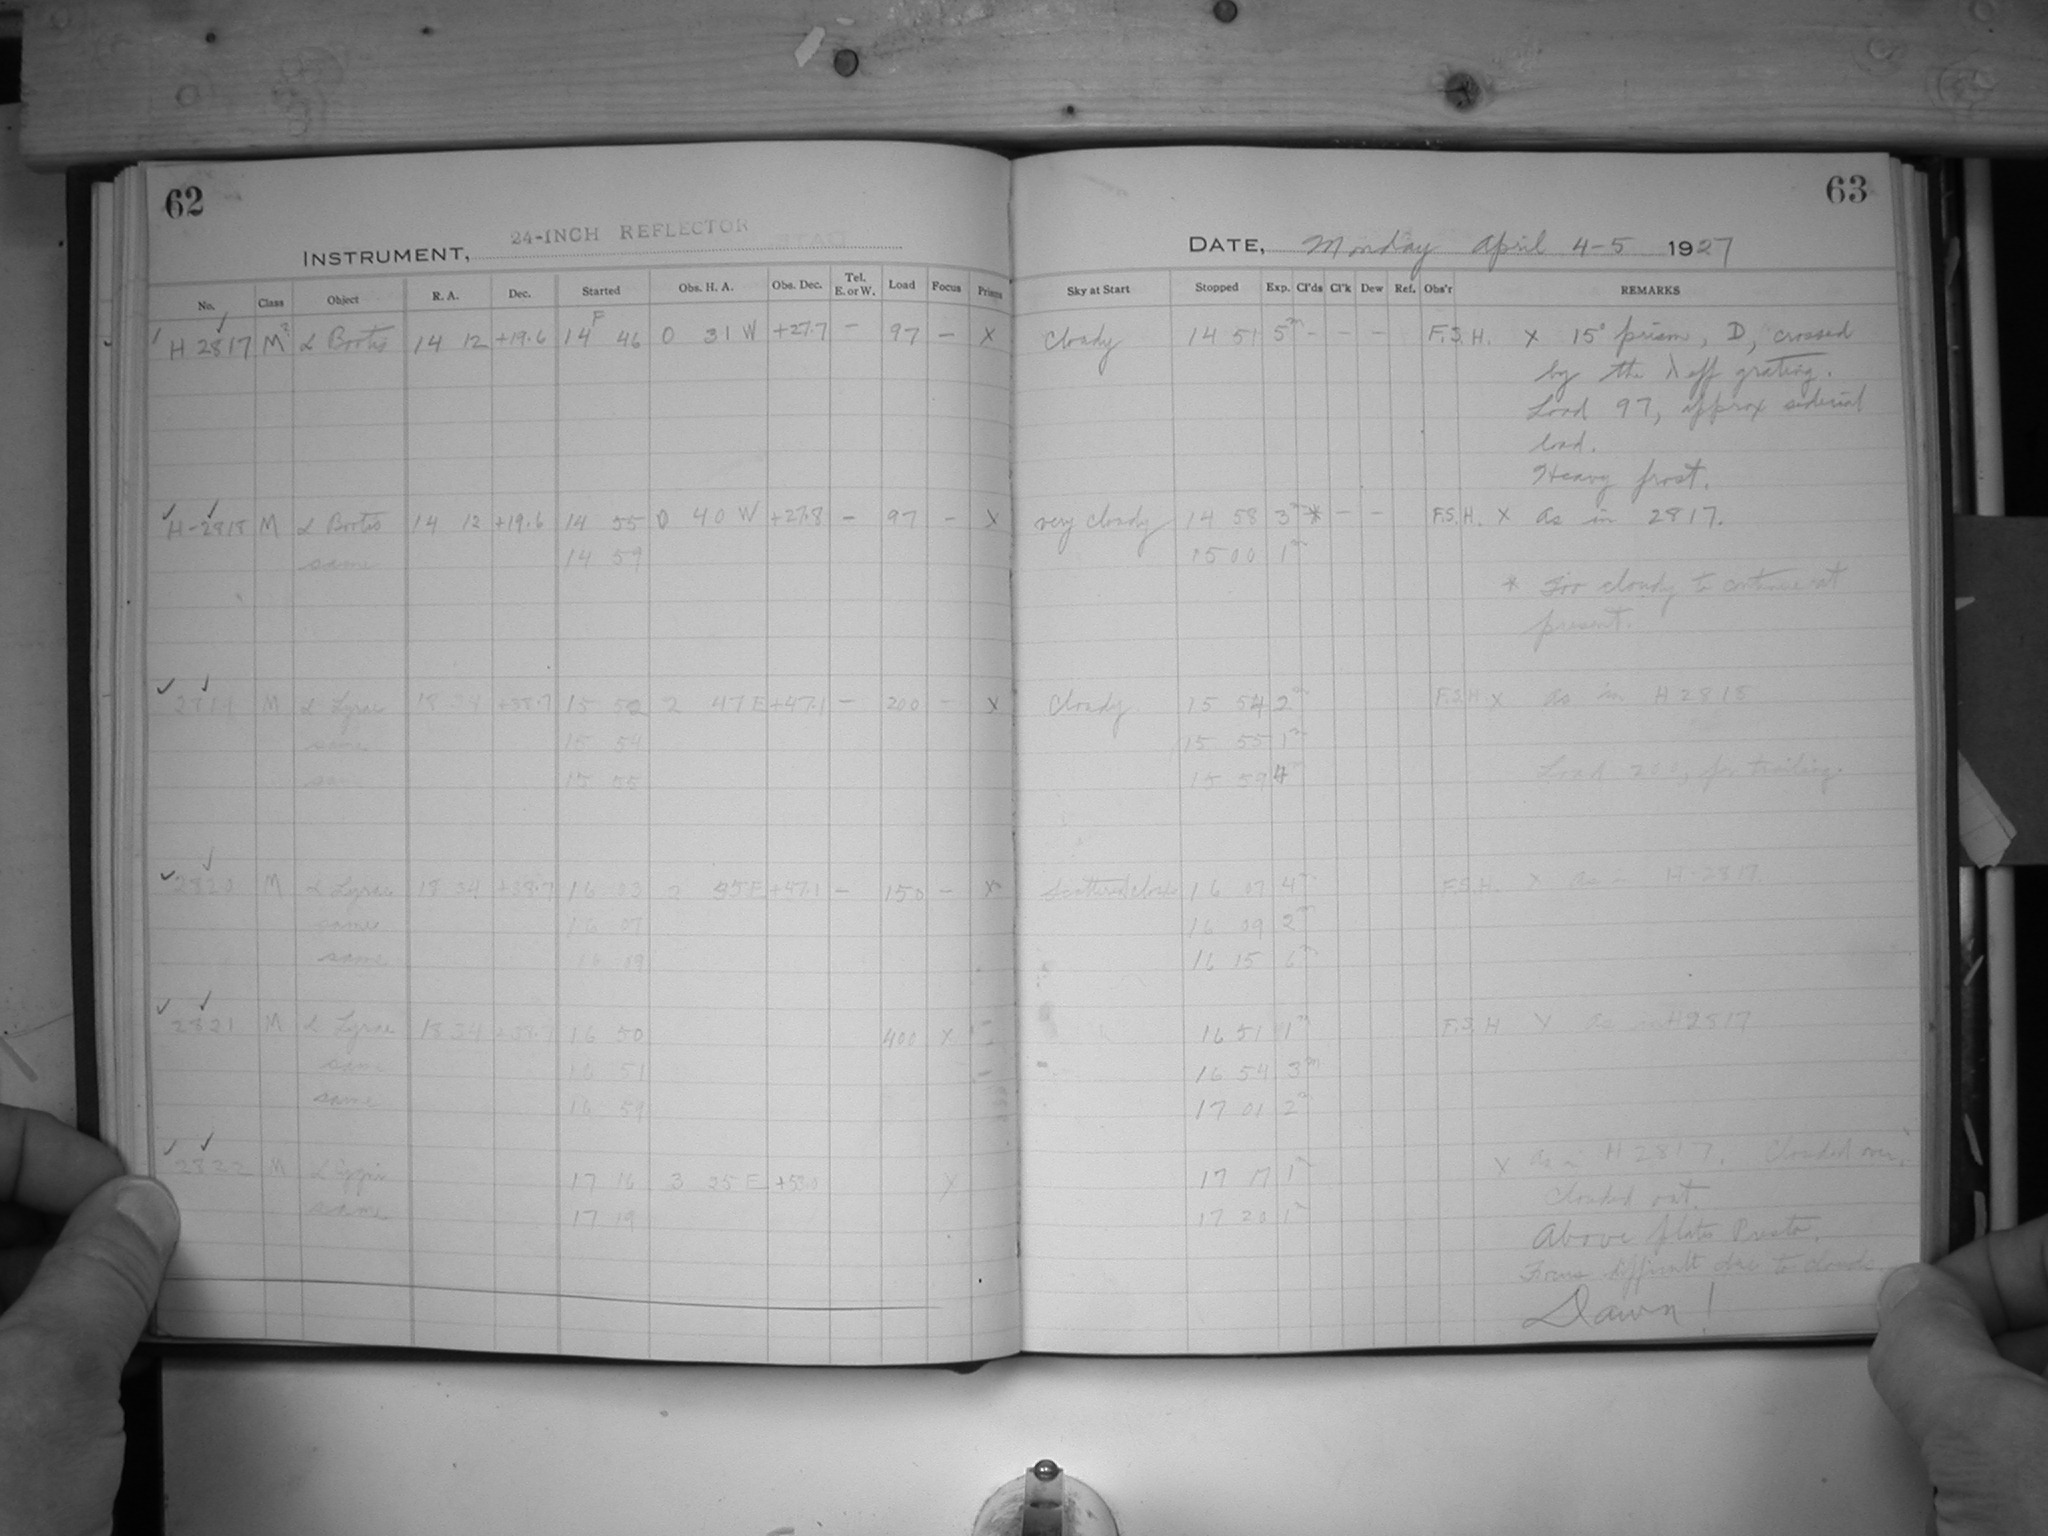 62
INSTRUMENT, 24-INCH REFLECTOR
No. Class Object R. A. Dec. Started Obs. H. A. Obs. Dec. Tel. E. or W. Load Focus Prisms
H 2817 M? α Bootis 14 12 +19.6 14 46 0 31 W +27.7 - 97 - X
H-2818 M α Bootis 14 12 +19.6 14 55 0 40 W +27.8 - 97 - X
same 14 59
M α Lyrae 18 34 +38.7 15 52 2 47 E +47.1 - 200 - X
same 15 54
same 15 55
2820 M α Lyrae 18 34 +38.7 16 03 2 35 E +47.1 - 150 - X
same 16 07
same 16 09
2821 M α Lyrae 18 34 +38.7 16 50 400 X
same 16 51
same 16 59
2822 M α 17 16 3 25 E X
same 17 19
63
DATE, Monday April 4-5 1927
Sky at Start Stopped Exp. Cl'ds Cl'k Dew Ref. Obs'r REMARKS
Cloudy 14 51 5m - - - F.S.H. X 15° prism, D, crossed
by the λ eff grating.
Load 97, approx siderial
load.
Heavy frost.
very cloudy 14 58 3m * - - F.S.H. X as in 2817.
15 00 1m
* Too cloudy to continue at
present.
Cloudy 15 54 2m F.S.H. X as in H 2818
15 55 1m
15 59 4m
Load 200, for trailing.
Scattered clouds 16 07 4m F.S.H. X as in H 2817
16 09 2m
16 15 6m
16 51 1m F.S.H X as in H 2817
16 54 3m
17 01 2m
17 17 1m X as in H 2817. Clouded over.
Clouded out.
17 20 1m
Above plate Presto.
Focus difficult due to clouds
Dawn!